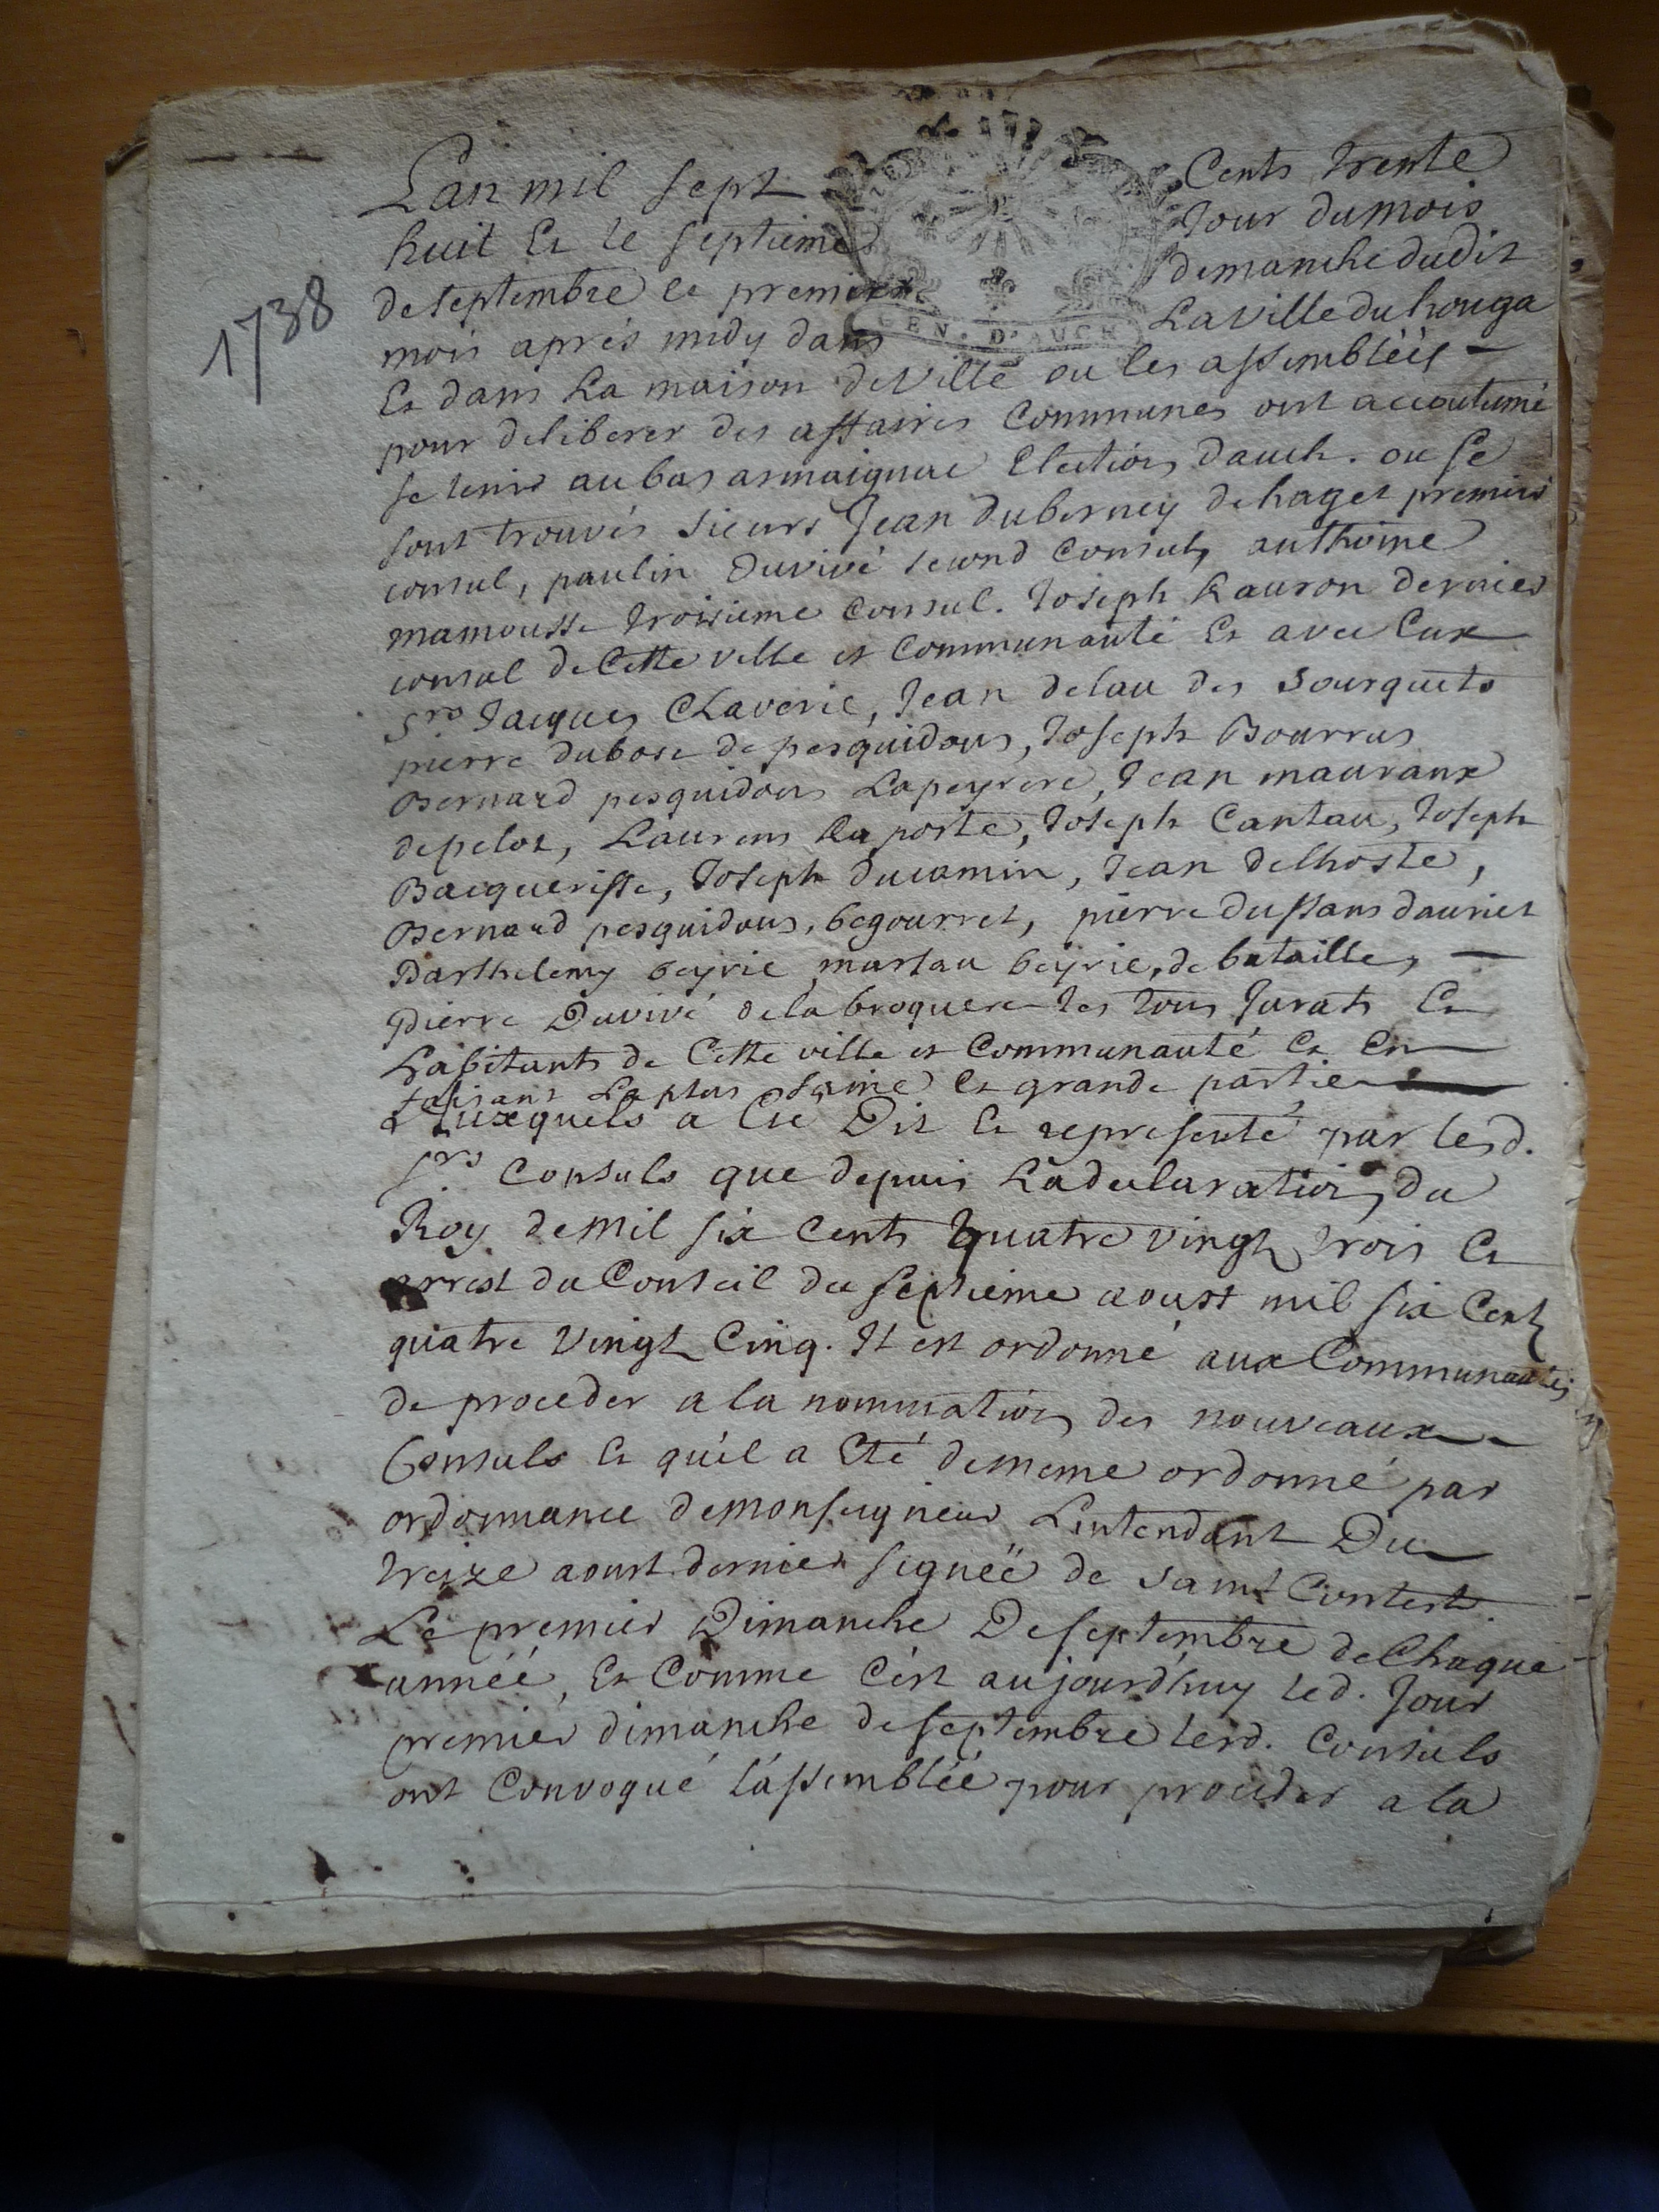 1738
Lan mil sept Cents trente
huit Et le septieme Jour dumois
de septembre le premier dimanche dudit
mois aprés midy dans La ville du houga
Et dans La maison de ville ou les assembléés
pour deliberer des affaires Communes ont accoutumé
se tenir au bas armaignac Election dauch. ou se
sont trouvés sieurs Jean duberney de haget premier
consul, paulin Duvivé second Consul, anthoine
mamousse troisieme Consul. Joseph Lauron dernier
consul de Cette ville et Communauté Et avec Eux
Srs Jacques Claverie, Jean delau des Sourquets
pierre dubosc de pesquidous, Joseph Bourrus
Bernard pesquidous Lapeyrere, Jean mauranx
depelot, Laurens Laporte, Joseph Cantau, Joseph
Bacquerisse, Joseph ducamin, Jean delhoste,
Bernard pesquidous, begourret, pierre dussans dauriet
Barthelemy beyrie martau beyrie, de bataille,
pierre Duvivé de labroquere tous Jurats Et
habitants de Cette ville et Communauté Et En
faisant La plus saine Et grande partie
auxquels a Eté Dit Et representé par lesd.
Srs Consuls que depuis La declaration du
Roy de mil six Cents quatre vingt trois Et
arrest du Conseil du septieme aoust mil six Cent
quatre vingt Cinq. Il est ordonné aux Communautés
de proceder a la nommination des nouveaux
Consuls Et qu'il a Eté de meme ordonné par
ordonnance de monseigneur Lintendant Du
treize aoust dernier signéé de saint Contest
Le premier Dimanche De septembre de Chaque
annéé, Et Comme C'est aujourd'huy led. Jour
premier dimanche de septembre lesd. Consuls
ont Convoqué l'assembléé pour proceder a la
GEN. D'AUCH